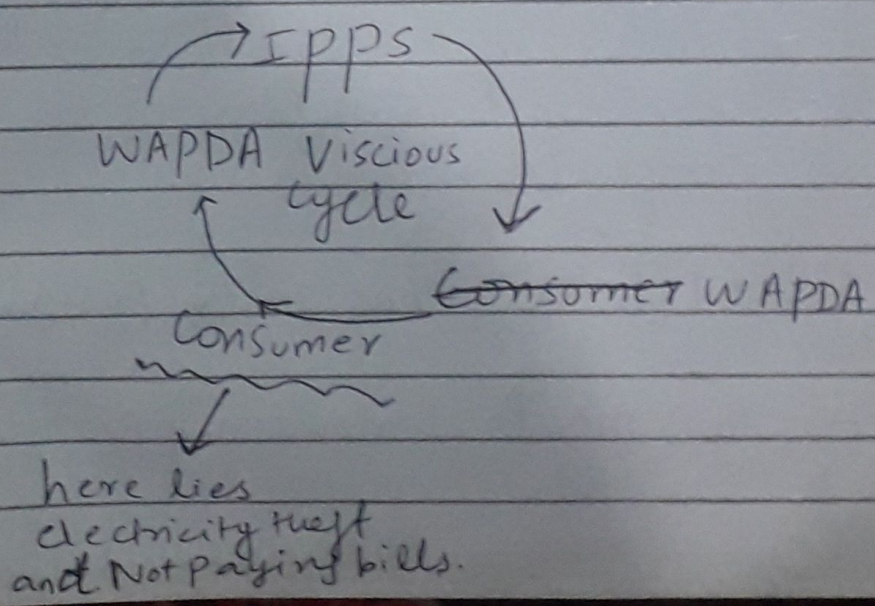 IPPS
WAPDA Viscious
Cycle
Consumer WAPDA
Consumer
here lies
electricity theft
and Not paying bills.